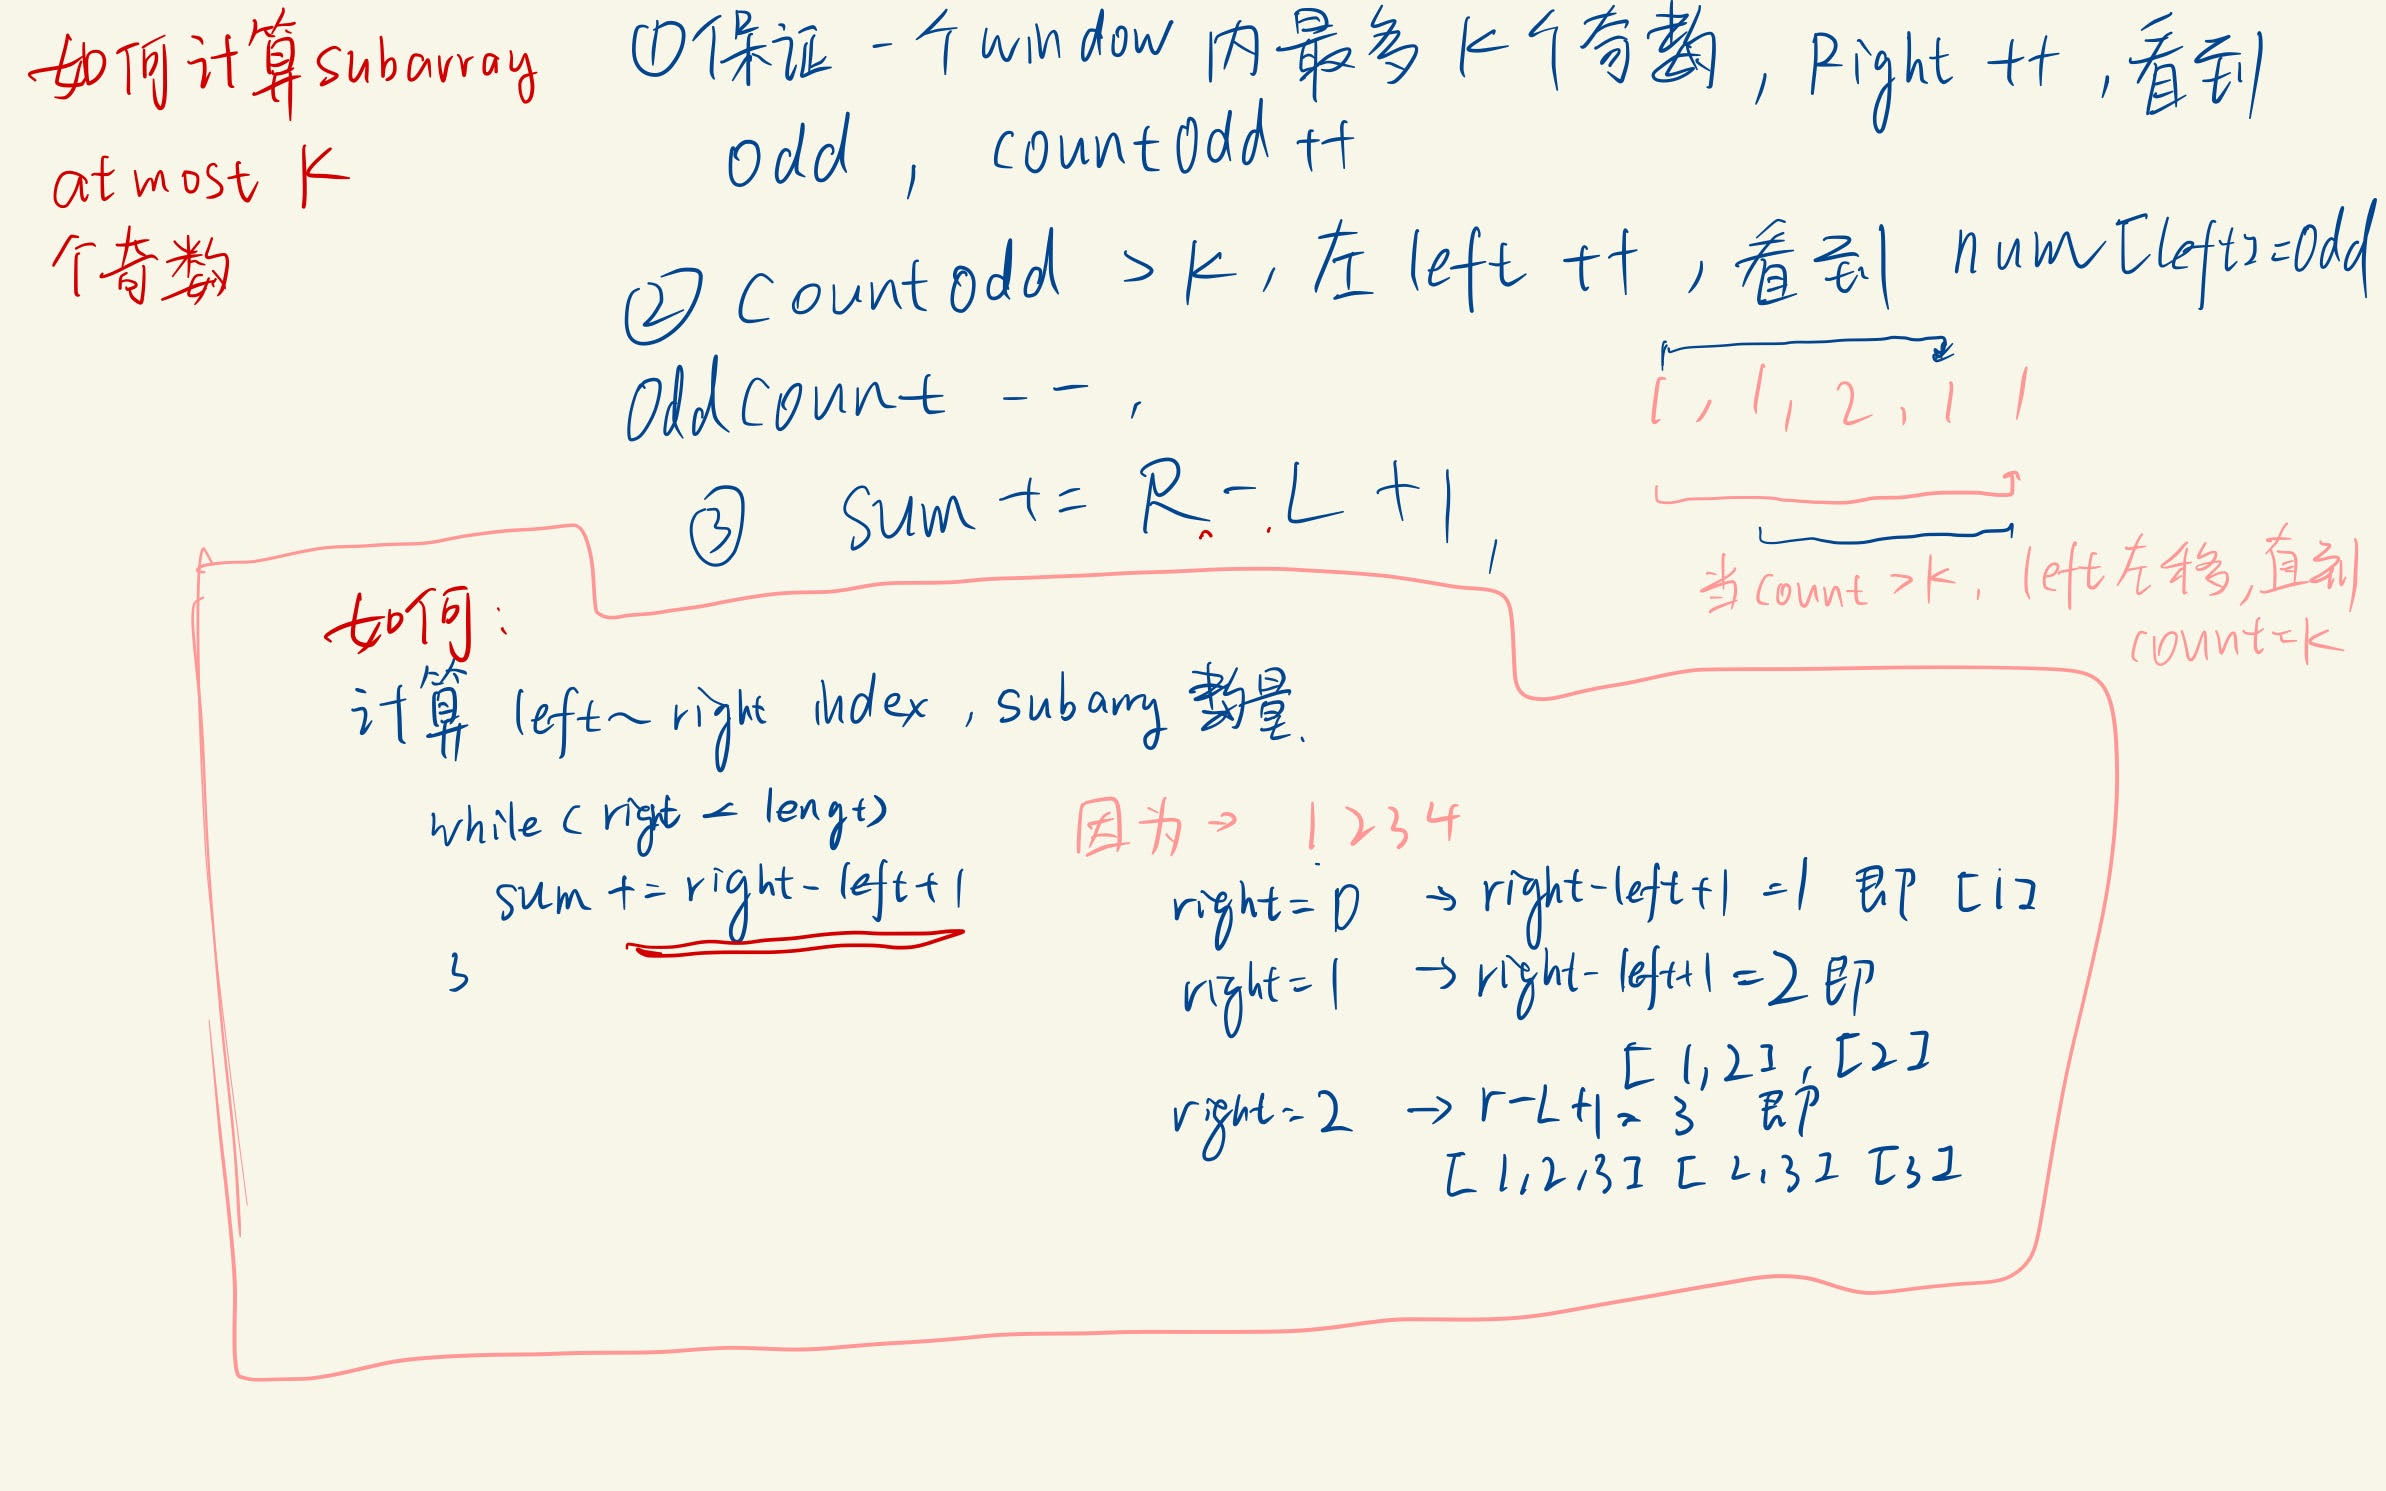 如何计算subarray
at most K
个奇数
①保证一个window内最多K个奇数, Right ++, 看到
odd, countOdd ++
② Countodd > K, 左 left ++, 看到 num[left]=odd
OddCount --,
③ sum += R - L + 1,
1, 1, 2, 1 1
当count > K, left左移, 直到
count=K
如何:
计算 left~right index, subarry 数量.
while ( right < lengt)
sum += right-left+1
}
因为 → 1 2 3 4
right = 0 → right-left+1 = 1 即 [1]
right = 1 → right-left+1 = 2 即
[1,2], [2]
right = 2 → r-L+1 = 3 即
[1,2,3] [2,3] [3]